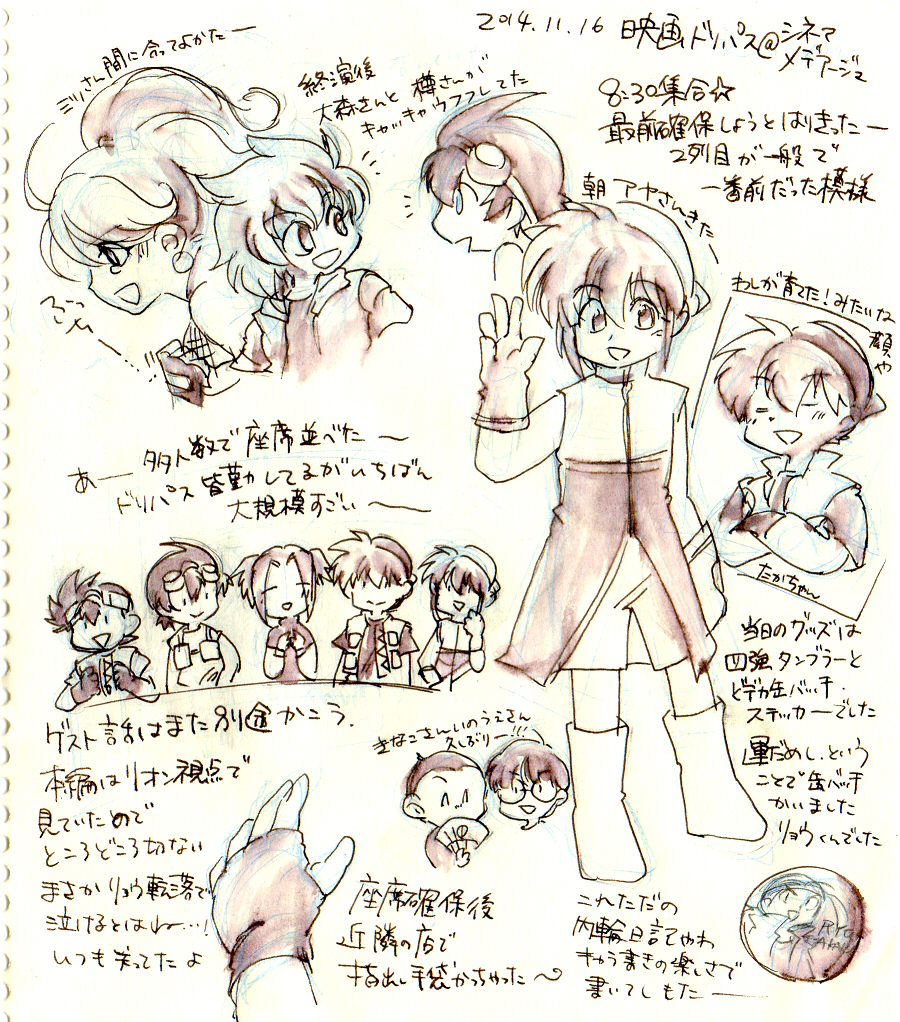 2014.11.16 映画ドリパス@シネマ
メディアージュ
8:30集合☆
最前確保しようとはりきったー
2列目が一般で
一番前だった模様
ミリさん間に合ってよかたー
終演後
大森さんと樽さんが
キャッキャウフフしてた
朝アヤさんきた
わしが育てた!みたいな
顔や
たかちゃん
多人数で座席並べたー〜
あーードリパス皆勤してるがいちばん
大規模すごい〜
当日のグッズは
四強タンブラーと
どデカ缶バッチ.
ステッカーでした
運だめし、という
ことで缶バッチ
かいました
リョウくんでした
ゲスト話はまた別途かこう.
きなこさんいのうえさん
久しぶりー!!!
本編はリオン視点で
見ていたので
ところどころ切ない
まさかリョウ転落で
泣けるとはねー…!
いつも笑ってたよ
座席確保後
近隣の店で
指出し手袋かっちゃった〜
これただの
内輪日記やわ
きゃら書きの楽しさで
書いてしもたー